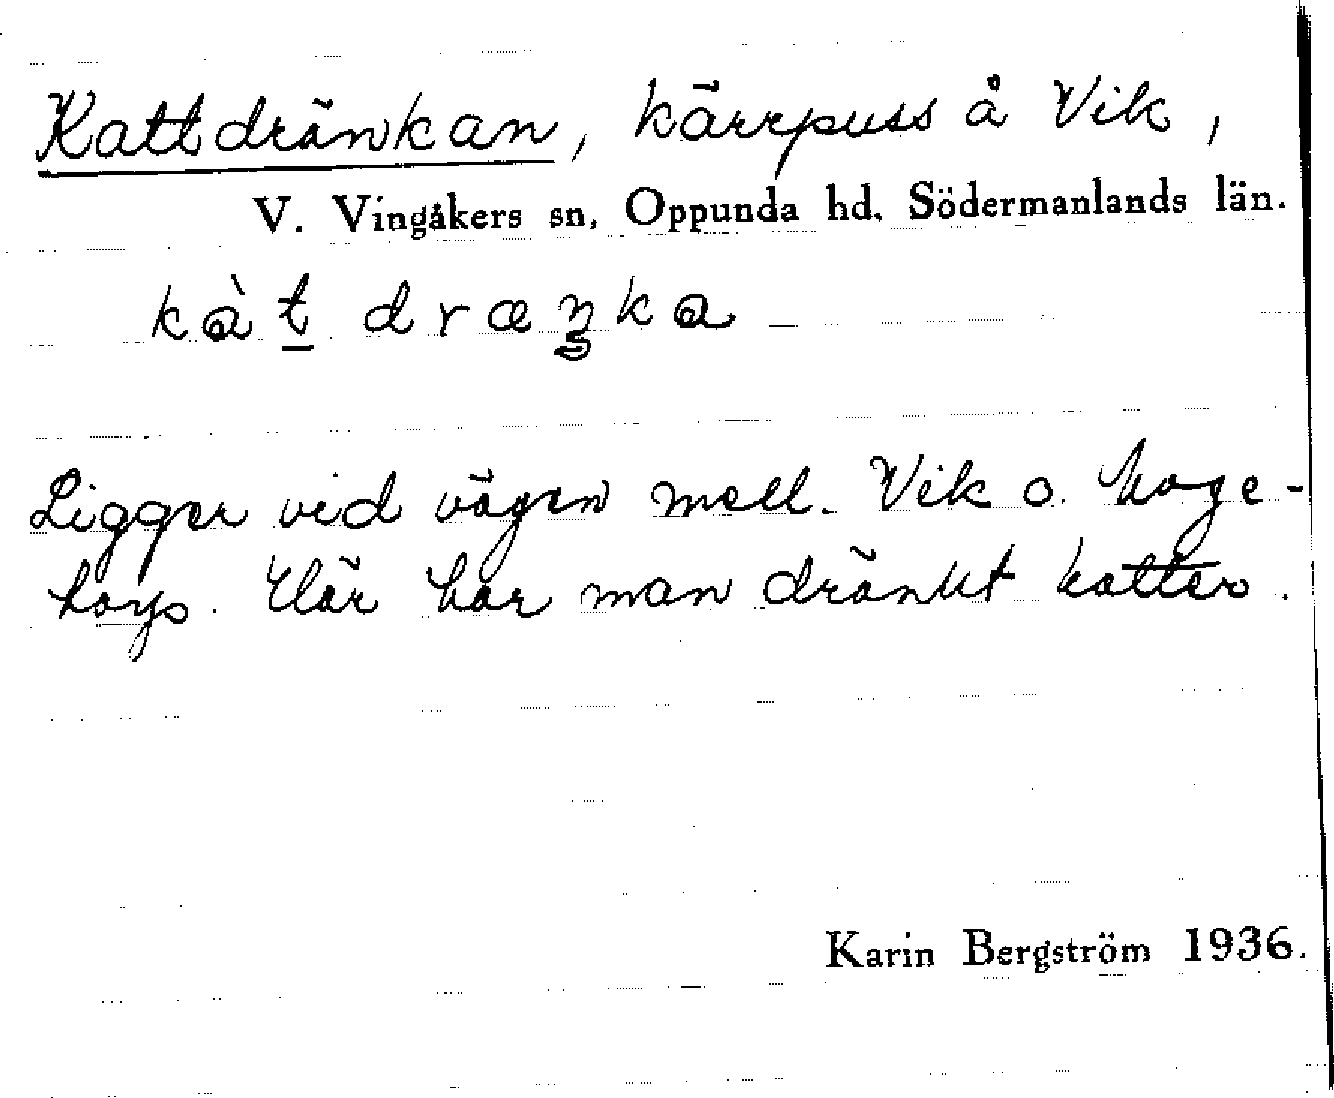 Kattdränkan, kärrpuss å Vik,
V. Vingåkers sn, Oppunda hd. Södermanlands län.
kàt dræŋka
Ligger vid vägen mell. Vik o. Hage-
torp. Här har man dränkt katter.
Karin Bergström 1936.